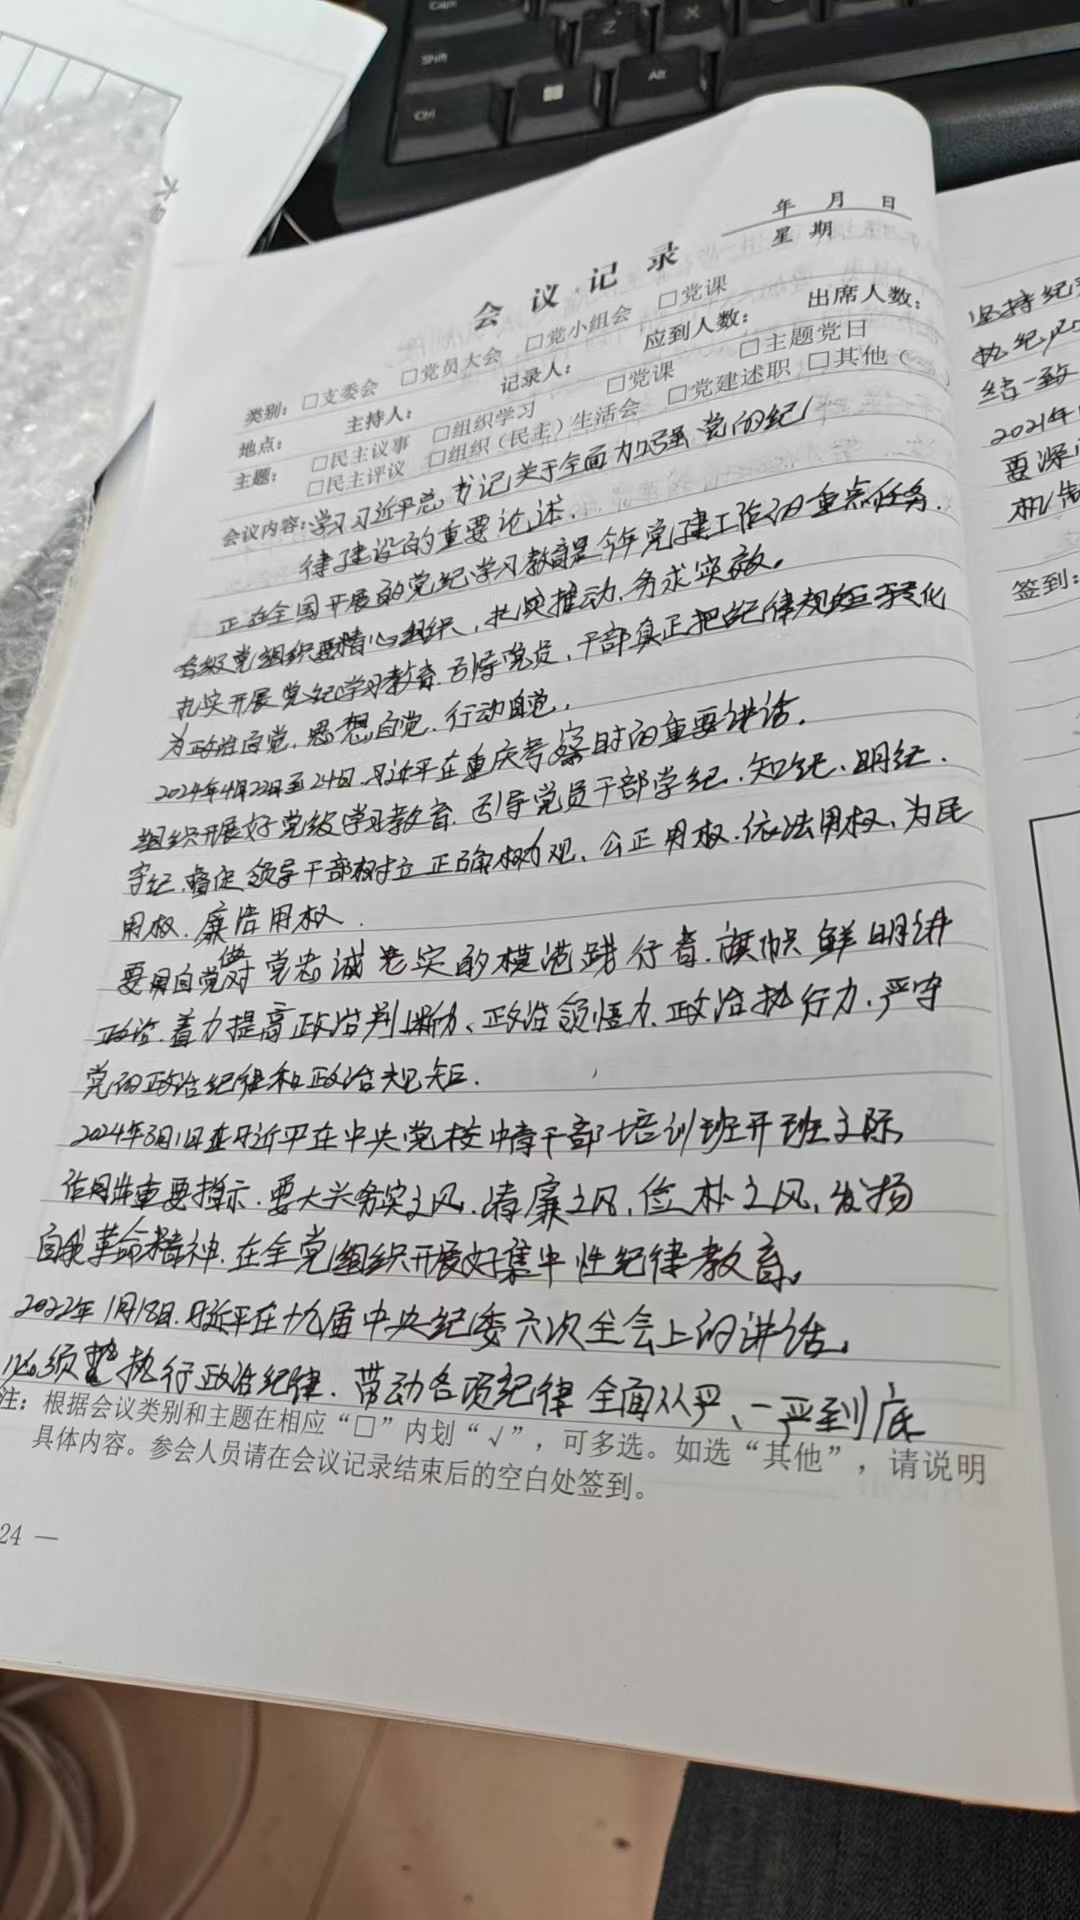 Caps
Shift
Z
X
Ctrl
Alt
年 月 日
星 期
会 议 记 录
类别：□支委会 □党员大会 □党小组会 □党课
地点： 主持人： 记录人： 应到人数： 出席人数：
主题： □民主议事 □组织学习 □党课 □主题党日
□民主评议 □组织（民主）生活会 □党建述职 □其他（
会议内容：学习习近平总书记关于全面加强党的纪
律建设的重要论述．
正在全国开展的党纪学习教育是今年党建工作的重点任务．
各级党组织要精心组织、扎实推动、务求实效。
扎实开展党纪学习教育．引导党员、干部真正把纪律规矩转化
为政治自觉、思想自觉、行动自觉．
2024年4月22日至24日．习近平在重庆考察时的重要讲话．
组织开展好党纪学习教育．引导党员干部学纪、知纪、明纪、
守纪．督促领导干部树立正确权力观、公正用权、依法用权、为民
用权、廉洁用权．
要用自觉做对党忠诚老实的模范践行者．旗帜鲜明讲
政治．着力提高政治判断力、政治领悟力、政治执行力．严守
党的政治纪律和政治规矩．
2024年3月1日在习近平在中央党校中青干部培训班开班之际
作出重要指示．要大兴务实之风、清廉之风、俭朴之风，发扬
自我革命精神．在全党组织开展好集中性纪律教育。
2022年1月18日．习近平在十九届中央纪委六次全会上的讲话．
必须 执行政治纪律．带动各项纪律全面从严、一严到底
注：根据会议类别和主题在相应“□”内划“√”，可多选。如选“其他”，请说明
具体内容。参会人员请在会议记录结束后的空白处签到。
24 —
坚持纪
执纪
结一致
2021年
要深
签到：